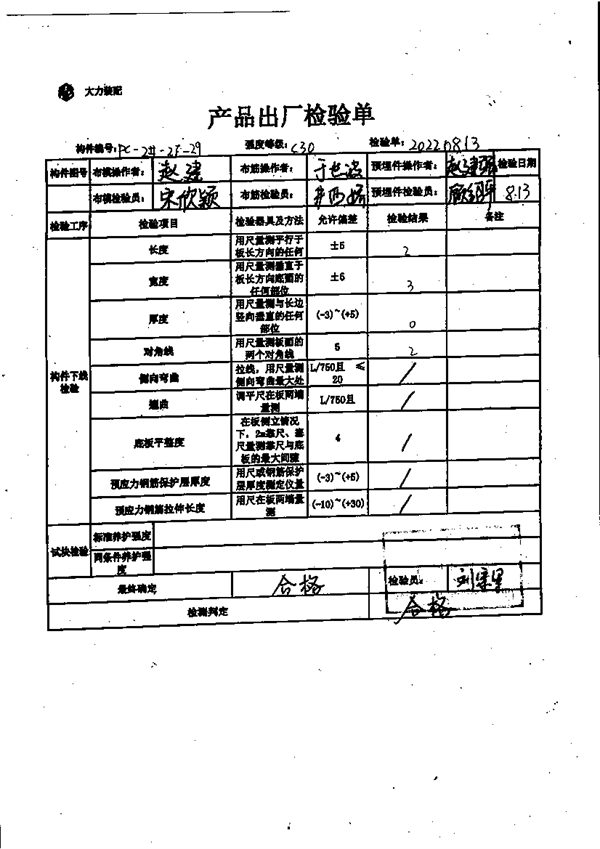 大力装配
产品出厂检验单
构件编号: PC-2#-2F-29 强度等级: C30 检验单: 20220813
构件图号 布模操作者: 赵建 布筋操作者: 预埋件操作者: 检验日期
布模检验员: 宋欣颖 布筋检验员: 预埋件检验员: 8.13
检验工序 检验项目 检验器具及方法 允许偏差 检验结果 备注
构件下线检验
长度 用尺量测平行于板长方向的任何 ±5 2
宽度 用尺量测垂直于板长方向底面的任何部位 ±6 3
厚度 用尺量测与长边竖向垂直的任何部位 (-3)~(+5) 0
对角线 用尺量测板面的两个对角线 5 2
侧向弯曲 拉线，用尺量测侧向弯曲最大处 L/750且 ≤20 /
翘曲 调平尺在板两端量测 L/750且 /
底板平整度 在板侧立情况下，2m靠尺、塞尺量测靠尺与底板的最大间隙 4 /
预应力钢筋保护层厚度 用尺或钢筋保护层厚度测定仪量 (-3)~(+5) /
预应力钢筋拉伸长度 用尺在板两端量测 (-10)~(+30) /
试块检验 标准养护强度
同条件养护强度
最终确定 合格 检验员:
检测判定 合格